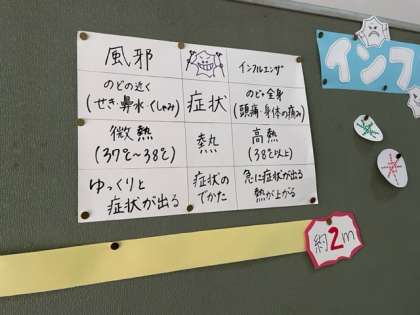 風邪
インフルエンザ
のどの近く
(せき・鼻水・くしゃみ)
症状
のど+全身
(頭痛・身体の痛み)
微熱
(37℃～38℃)
熱
高熱
(38℃以上)
ゆっくりと
症状が出る
症状の
でかた
急に症状が出る
熱が上がる
インフ
約2m